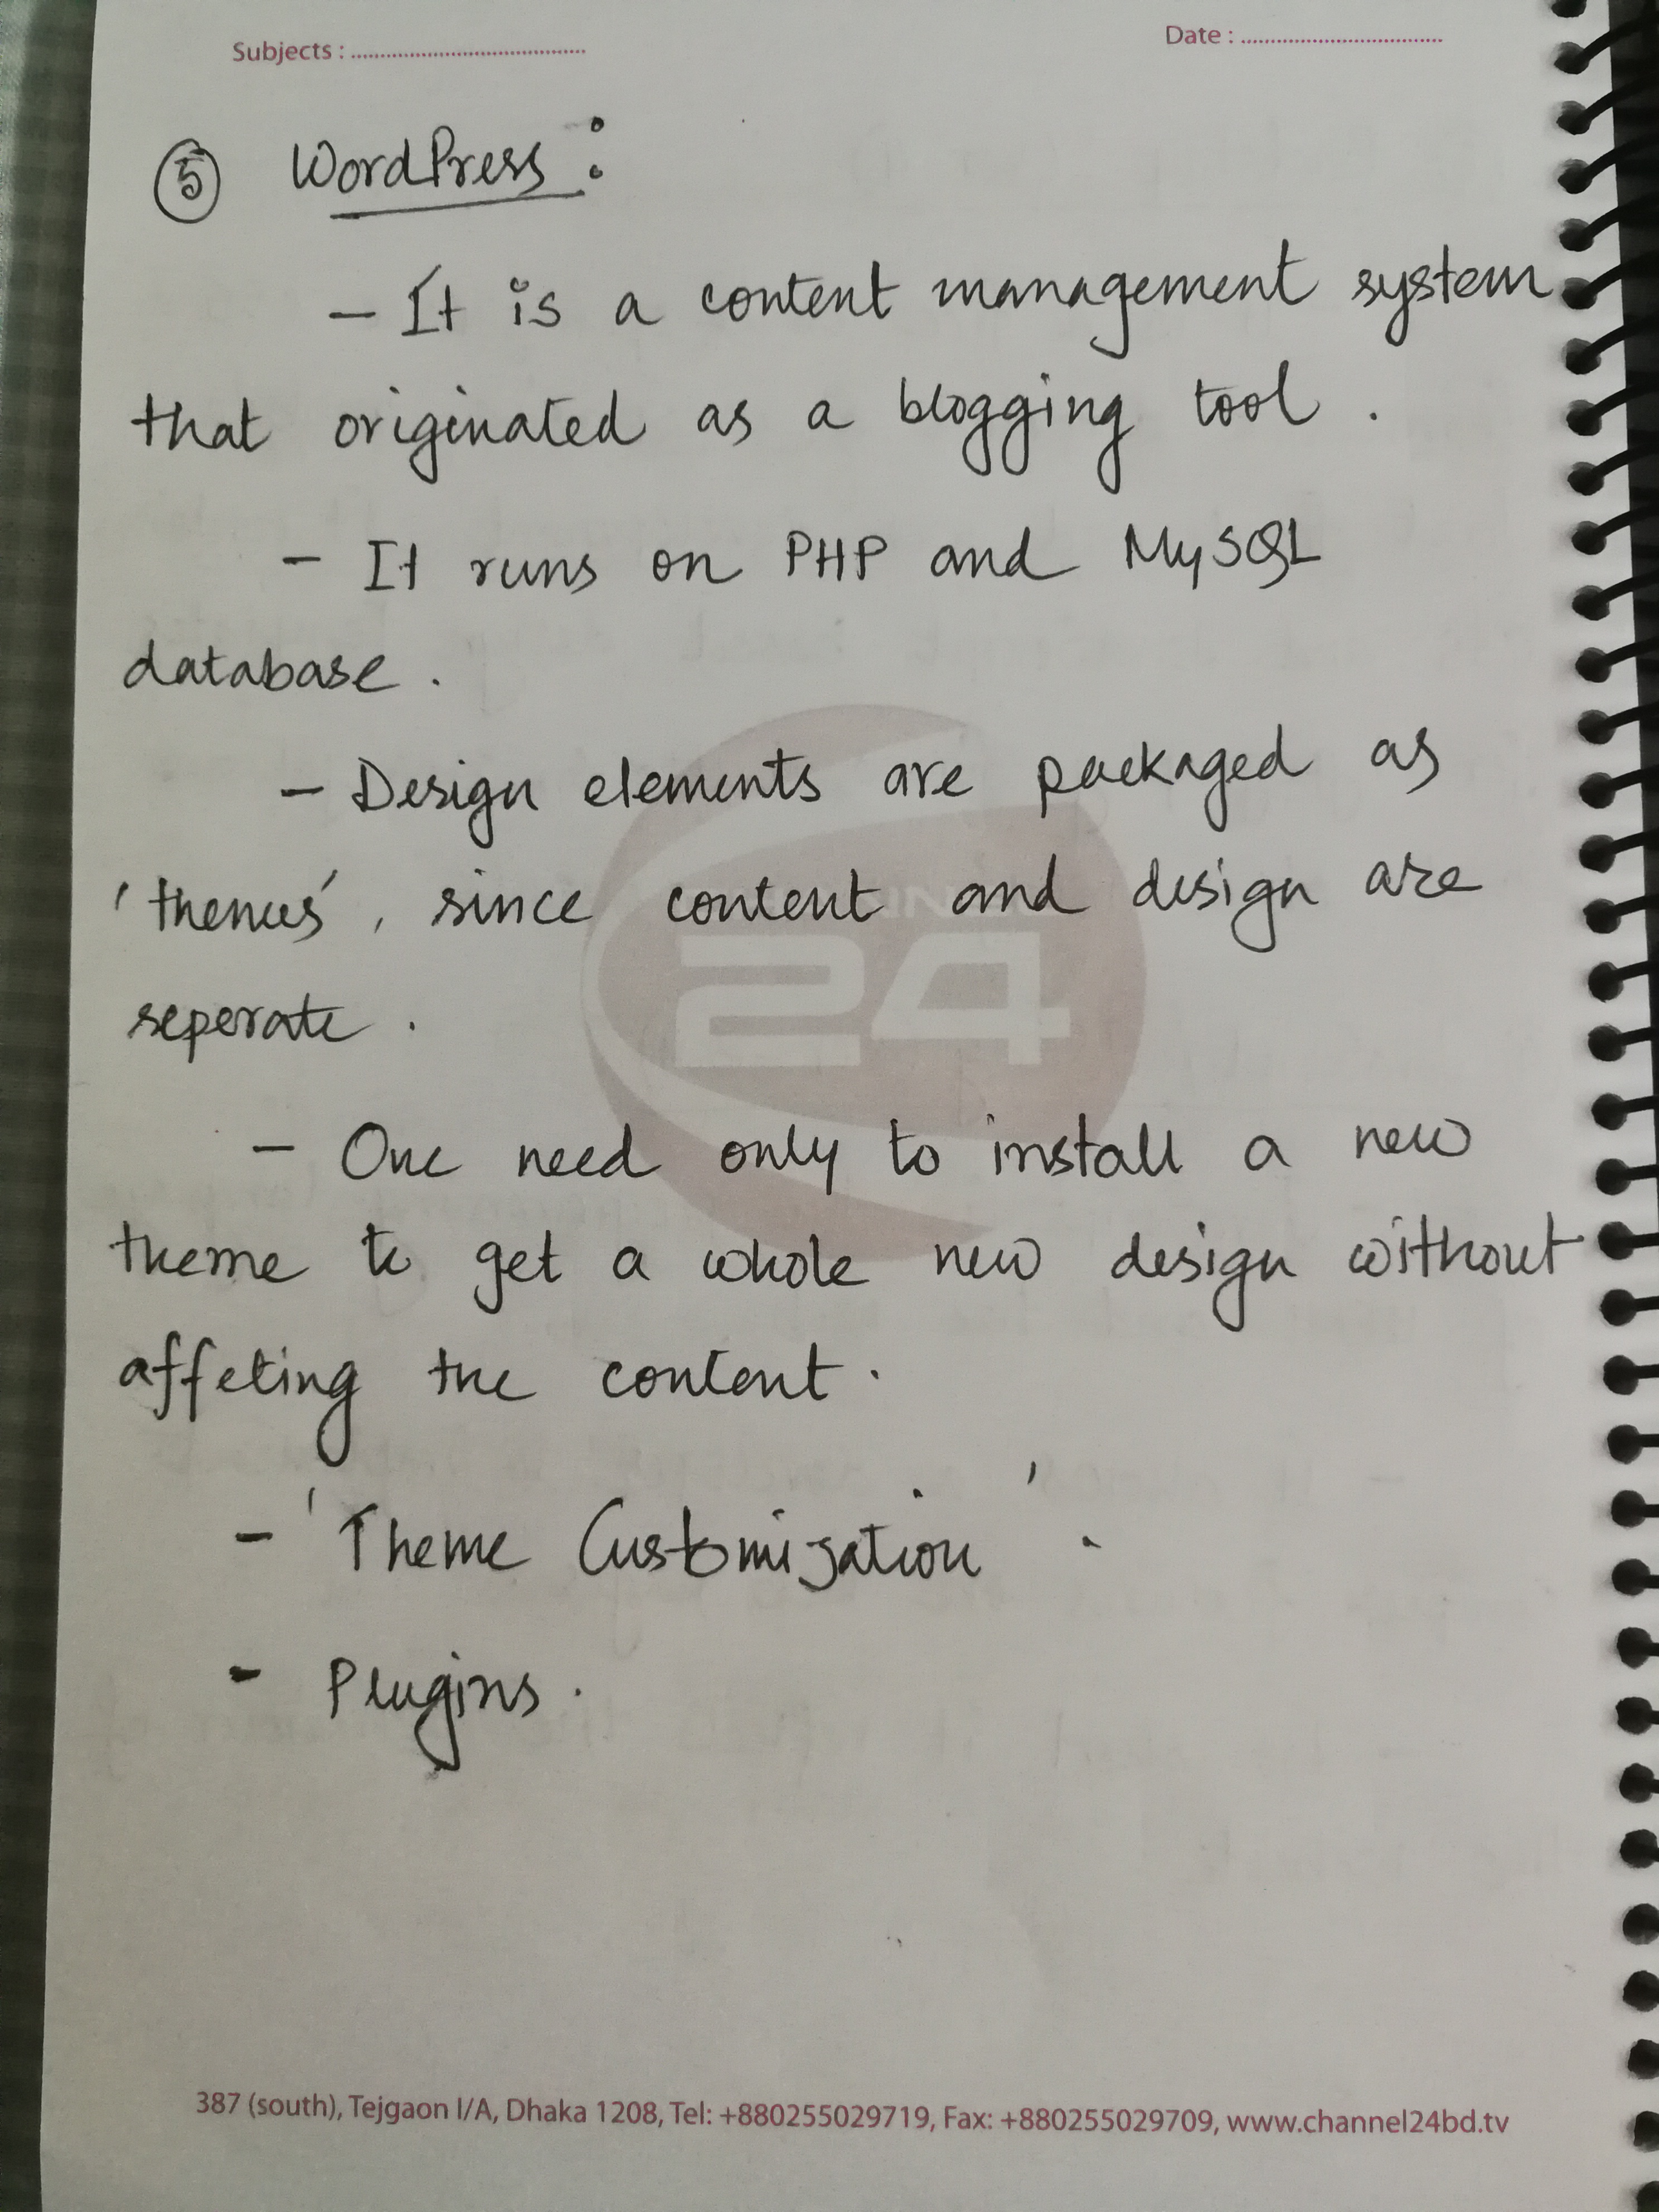 Subjects : ........................................
Date : ...................................
⑤ WordPress :
- It is a content management system
that originated as a blogging tool .
- It runs on PHP and MySQL
database .
- Design elements are packaged as
'themes', since content and design are
seperate .
24
- One need only to install a new
theme to get a whole new design without
affeting the content .
- 'Theme Customization' .
- Plugins .
387 (south), Tejgaon I/A, Dhaka 1208, Tel: +880255029719, Fax: +880255029709, www.channel24bd.tv